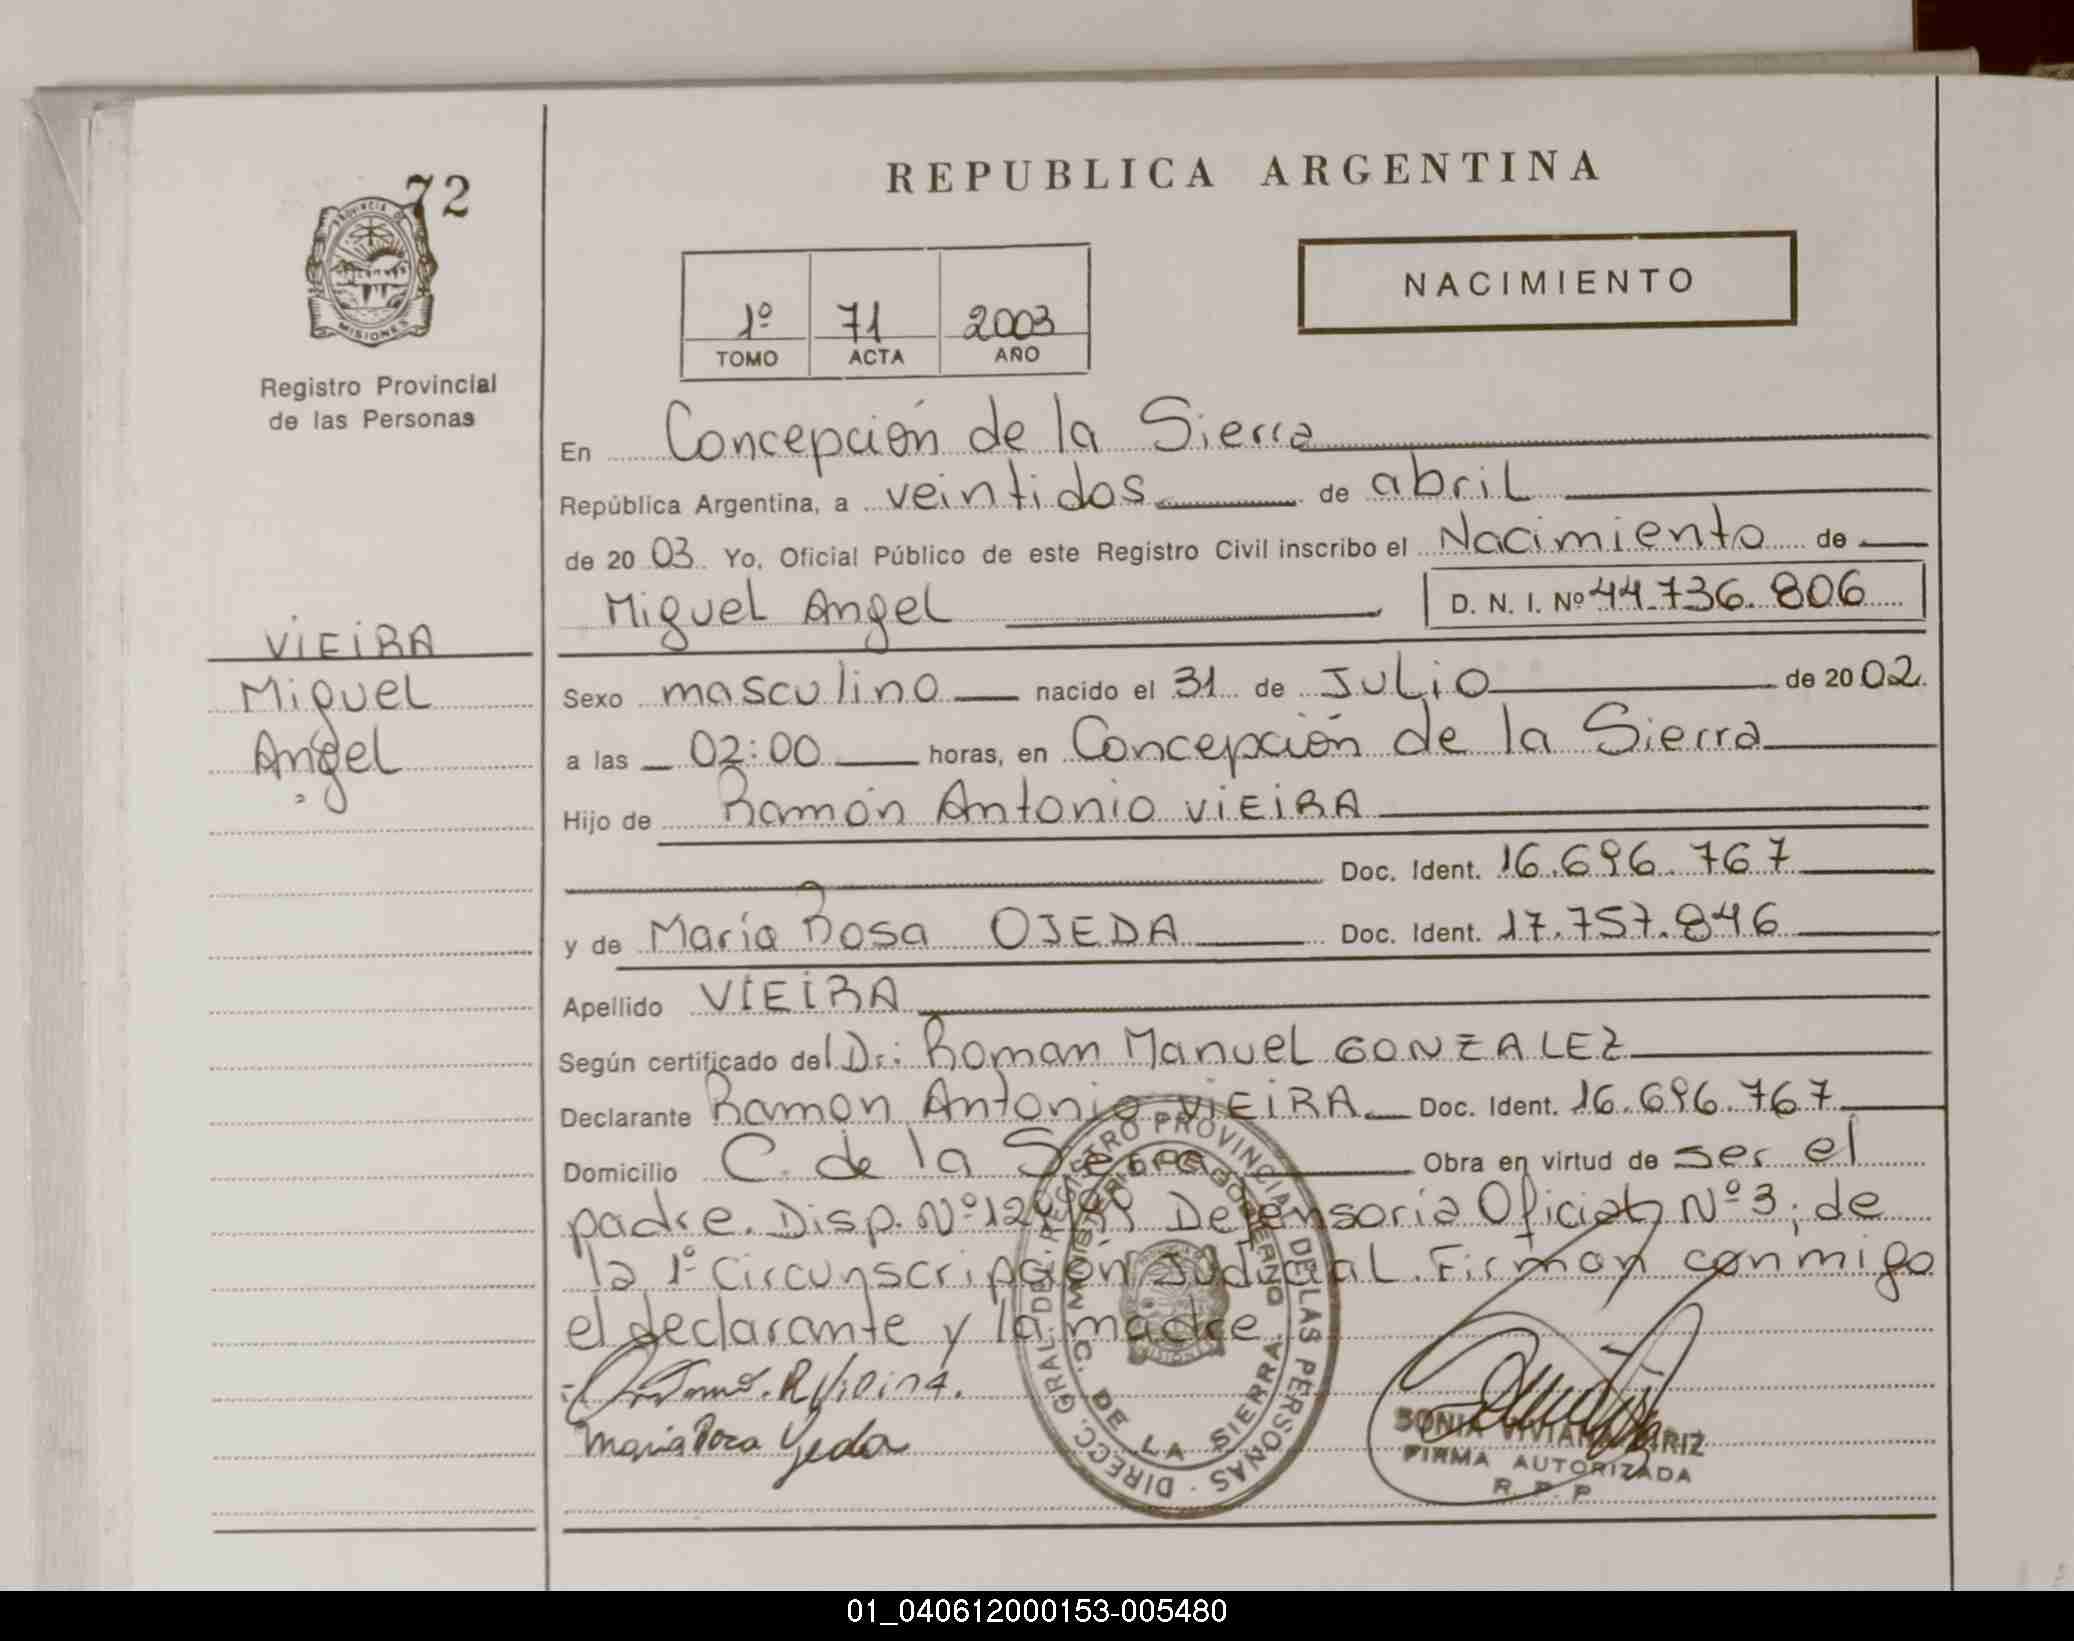 72
PROVINCIA DE
MISIONES
Registro Provincial
de las Personas
VIEIRA
Miguel
Angel
REPUBLICA ARGENTINA
NACIMIENTO
1º 71 2003
TOMO ACTA AÑO
En Concepción de la Sierra
República Argentina, a veintidos de abril
de 2003 Yo, Oficial Público de este Registro Civil inscribo el Nacimiento de
Miguel Angel D. N. I. Nº 44.736.806
Sexo masculino nacido el 31 de Julio de 2002.
a las 02:00 horas, en Concepción de la Sierra
Hijo de Ramón Antonio VIEIRA
Doc. Ident. 16.696.767
y de María Rosa OJEDA Doc. Ident. 17.757.846
Apellido VIEIRA
Según certificado del Dr: Roman Manuel GONZALEZ
Declarante Ramon Antonio VIEIRA Doc. Ident. 16.696.767
Domicilio C. de la Sierra Obra en virtud de ser el
padre. Disp. Nº Defensoría Oficial Nº 3, de
la 1º Circunscripción Judicial. Firman conmigo
el declarante y la madre
Maria Rosa Ojeda
DIRECC. GRAL DEL REGISTRO PROVINCIAL DE LAS PERSONAS
MINISTERIO DE GOBIERNO
C. DE LA SIERRA
MISIONES
SONIA
FIRMA AUTORIZADA
R. P. P.
01_040612000153-005480